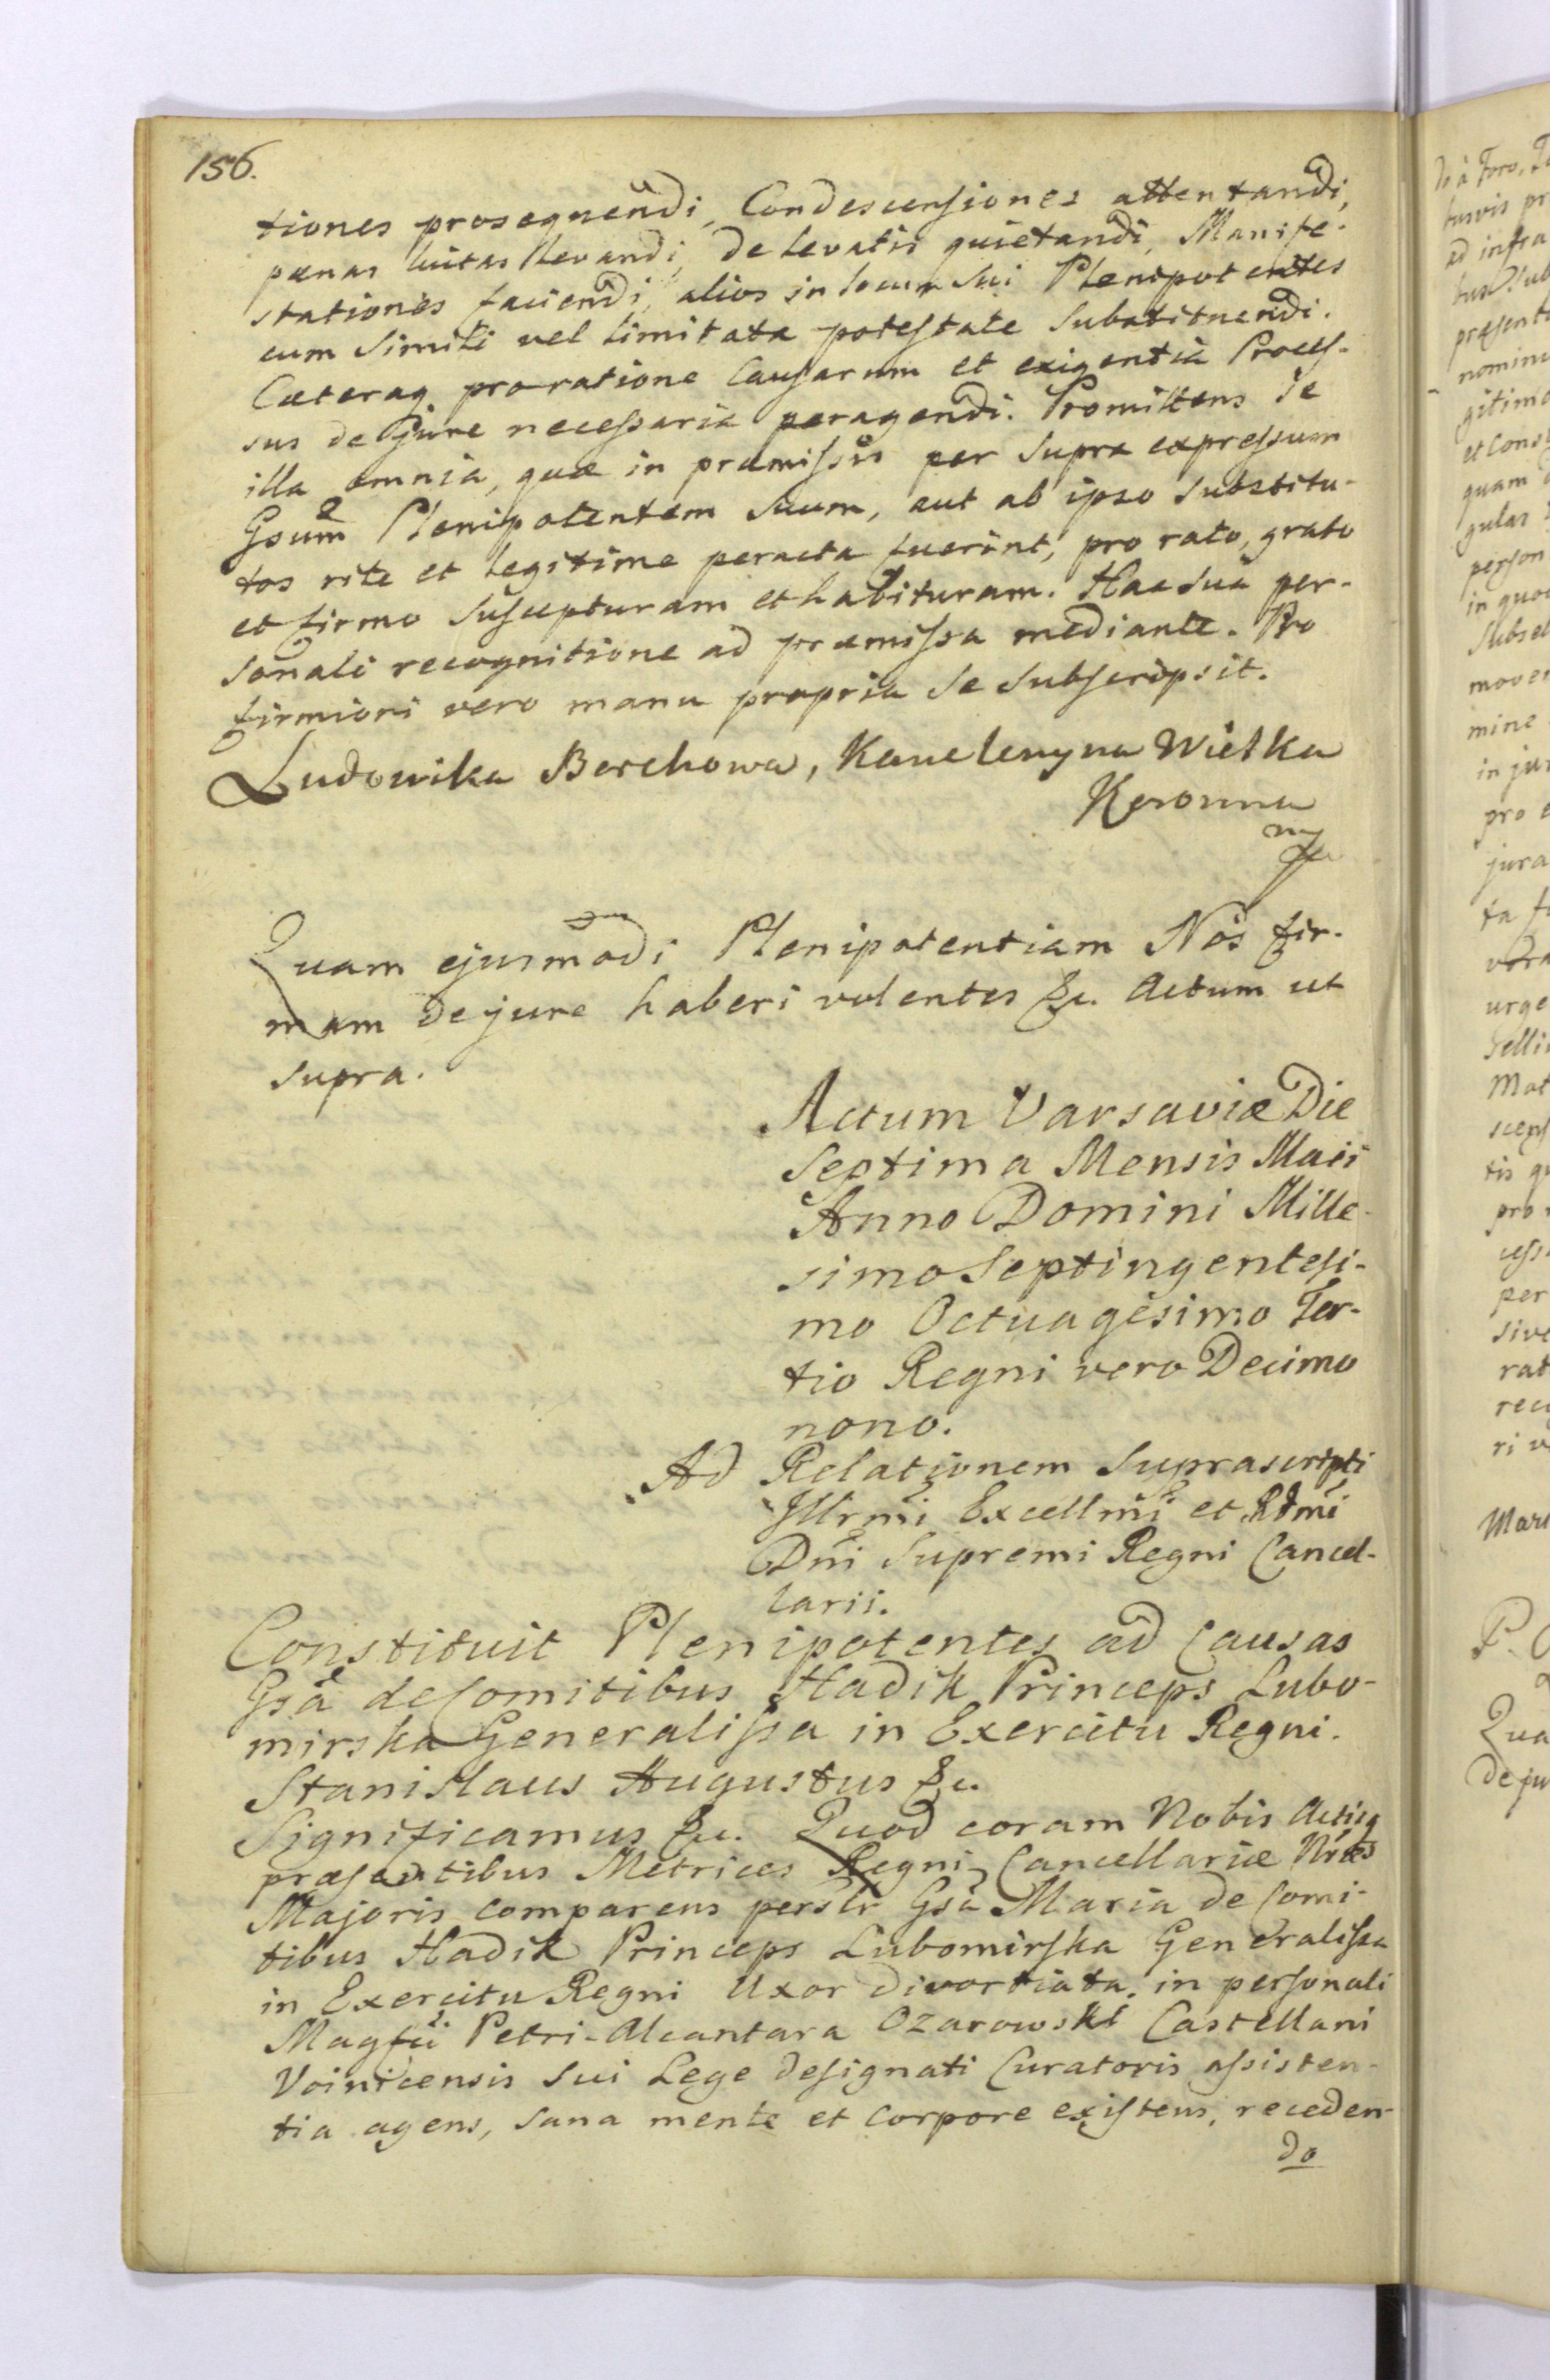 156.
tiones prosequendi, Condescensiones attentandi,
pænas luitas levandi, de levatis quietandi, Manife-
stationes faciendi, alios in locum sui Plenipotentes
cum simili vel limitata potestate substituendi.
Cæteraq pro ratione Causarum et exigentia Proces-
sus de jure necessaria peragendi. Promittens se
illa omnia, quæ in præmissis per supra expressum
Gsum Plenipotentem suum, aut ab ipso substitu-
tos rite et legitime peracta fuerint, pro rato, grato
et firmo suscepturam et habituram. Hac sua per-
sonali recognitione ad præmissa mediante. Pro
firmiori vero manu propria se subscripsit.
Ludowika Borchowa, Kanclerzyna Wielka
Koronna
mp
Quam ejusmodi Plenipotentiam Nos fir-
mam de jure haberi volentes &c. Actum ut
supra.
Actum Varsaviæ Die
Septima Mensis Maii
Anno Domini Mille-
simo Septingentesi-
mo Octuagesimo Ter-
tio Regni vero Decimo
nono.
Ad Relationem suprascripti
Illrmi Excellmi et Rdmi
Dni Supremi Regni Cancel-
larii.
Constituit Plenipotentes ad Causas
Gsa de Comitibus Hadik Princeps Lubo-
mirska Generalissa in Exercitu Regni.
Stanislaus Augustus &c.
Significamus &c. Quod coram Nobis Actisq
præsentibus Metrices Regni Cancellariæ Nræs
Majoris comparens persslr Gsa Maria de Comi-
tibus Hadik Princeps Lubomirska Generalissa
in Exercitu Regni Uxor divortiata, in personali
Magfci Petri-Alcantara Ozarowski Castellani
Voinicensis sui Lege designati Curatoris assisten-
tia agens, sana mente et corpore existens, receden-
do